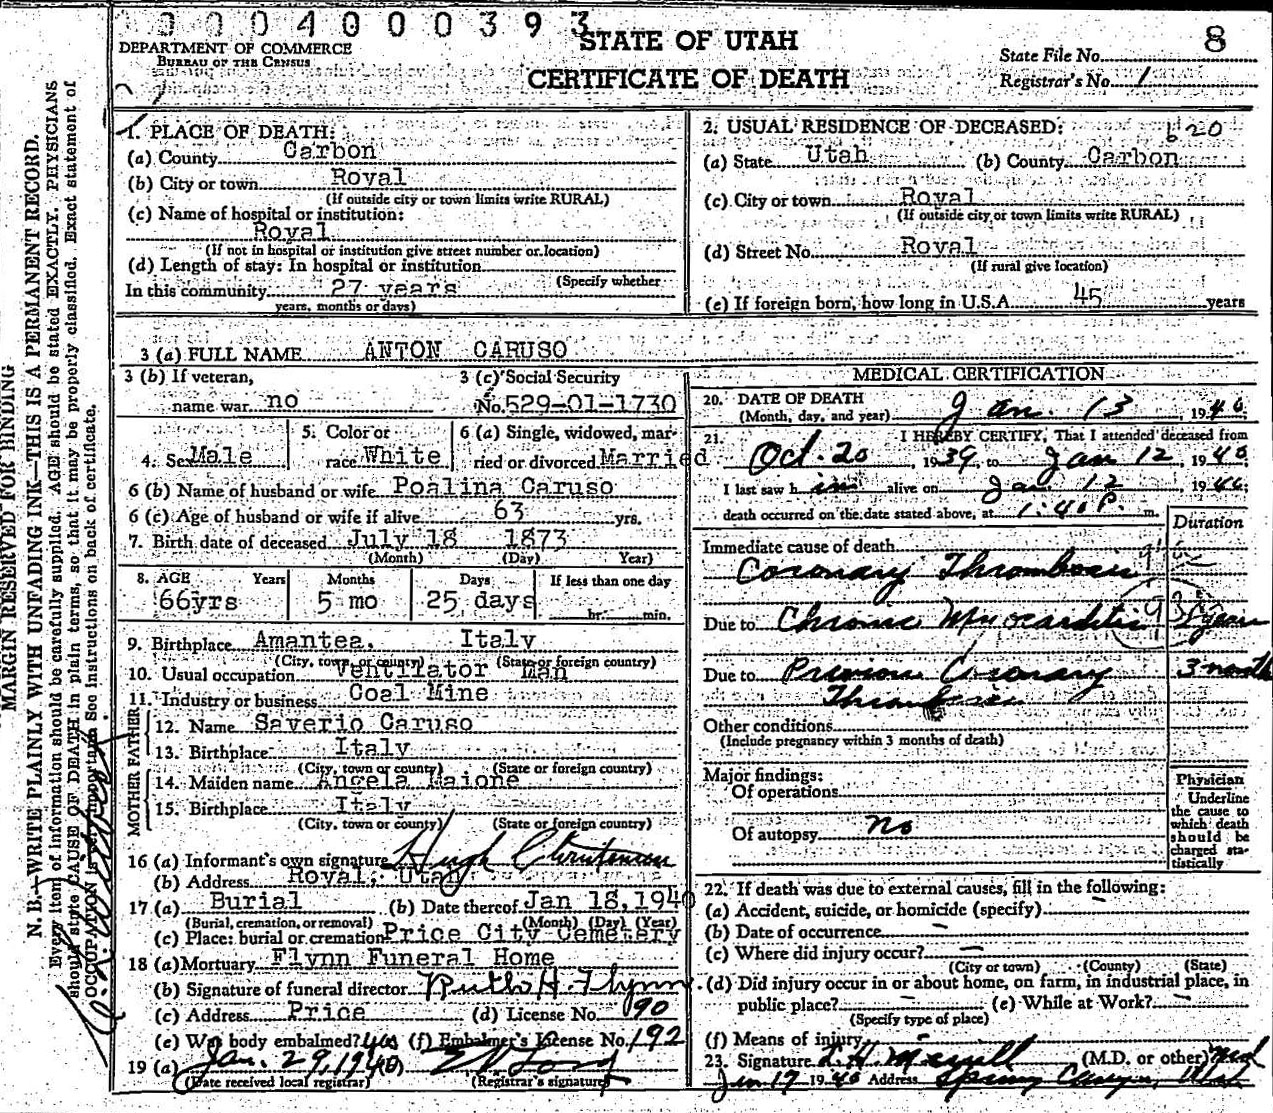 0 0 0 4 0 0 0 3 9 3
DEPARTMENT OF COMMERCE
BUREAU OF THE CENSUS
STATE OF UTAH
CERTIFICATE OF DEATH
8
State File No.
Registrar's No. 1
1. PLACE OF DEATH:
(a) County Carbon
(b) City or town Royal
(If outside city or town limits write RURAL)
(c) Name of hospital or institution:
Royal
(If not in hospital or institution give street number or location)
(d) Length of stay: In hospital or institution
(Specify whether
In this community 27 years
years, months or days)
2. USUAL RESIDENCE OF DECEASED: 620
(a) State Utah (b) County Carbon
(c) City or town Royal
(If outside city or town limits write RURAL)
(d) Street No. Royal
(If rural give location)
(e) If foreign born, how long in U.S.A. 45 years
3 (a) FULL NAME ANTON CARUSO
3 (b) If veteran,
name war. no
3 (c) Social Security
No. 529-01-1730
4. Sex Male
5. Color or
race White
6 (a) Single, widowed, mar-
ried or divorced Married
6 (b) Name of husband or wife Poalina Caruso
6 (c) Age of husband or wife if alive 63 yrs.
7. Birth date of deceased July 18 1873
(Month) (Day) Year)
8. AGE Years Months Days If less than one day
66yrs 5 mo 25 days hr. min.
9. Birthplace Amantea, Italy
(City, town, or county) (State or foreign country)
10. Usual occupation Ventilator Man
11. Industry or business Coal Mine
FATHER
12. Name Saverio Caruso
13. Birthplace Italy
(City, town or county) (State or foreign country)
MOTHER
14. Maiden name Angela Maione
15. Birthplace Italy
(City, town or county) (State or foreign country)
16 (a) Informant's own signature Hugh Christensen
(b) Address Royal, Utah
17 (a) Burial (b) Date thereof Jan 18, 1940
(Burial, cremation, or removal) (Month) (Day) (Year)
(c) Place: burial or cremation Price City Cemetery
18 (a) Mortuary Flynn Funeral Home
(b) Signature of funeral director Ruth H. Flynn
(c) Address Price (d) License No. 190
(e) Was body embalmed? yes (f) Embalmer's License No. 192
19 (a) Jan. 29, 1940
(Date received local registrar) (Registrar's signature)
MEDICAL CERTIFICATION
20. DATE OF DEATH
(Month, day, and year) Jan. 13 1940
21. I HEREBY CERTIFY, That I attended deceased from
Oct. 20, 1939, to Jan 12, 1940
I last saw him alive on Jan 12 1940
death occurred on the date stated above, at 1:40 P. m.
Duration
Immediate cause of death
Coronary Thrombosis
Due to Chronic Myocarditis 3 years
Due to Previous Coronary 3 months
Thrombosis
Other conditions
(Include pregnancy within 3 months of death)
Major findings:
Of operations
Of autopsy no
Physician
Underline
the cause to
which death
should be
charged sta-
tistically
22. If death was due to external causes, fill in the following:
(a) Accident, suicide, or homicide (specify) –
(b) Date of occurrence –
(c) Where did injury occur? –
(City or town) (County) (State)
(d) Did injury occur in or about home, on farm, in industrial place, in
public place? – (e) While at Work? –
(Specify type of place)
(f) Means of injury
23. Signature L. H. Merrill (M.D. or other) Md
Jan 17 1940 Address Spring Canyon, Utah
MARGIN RESERVED FOR BINDING
N. B.—WRITE PLAINLY WITH UNFADING INK—THIS IS A PERMANENT RECORD.
Every item of information should be carefully supplied. AGE should be stated EXACTLY. PHYSICIANS
should state CAUSE OF DEATH in plain terms, so that it may be properly classified. Exact statement of
OCCUPATION is very important. See instructions on back of certificate.